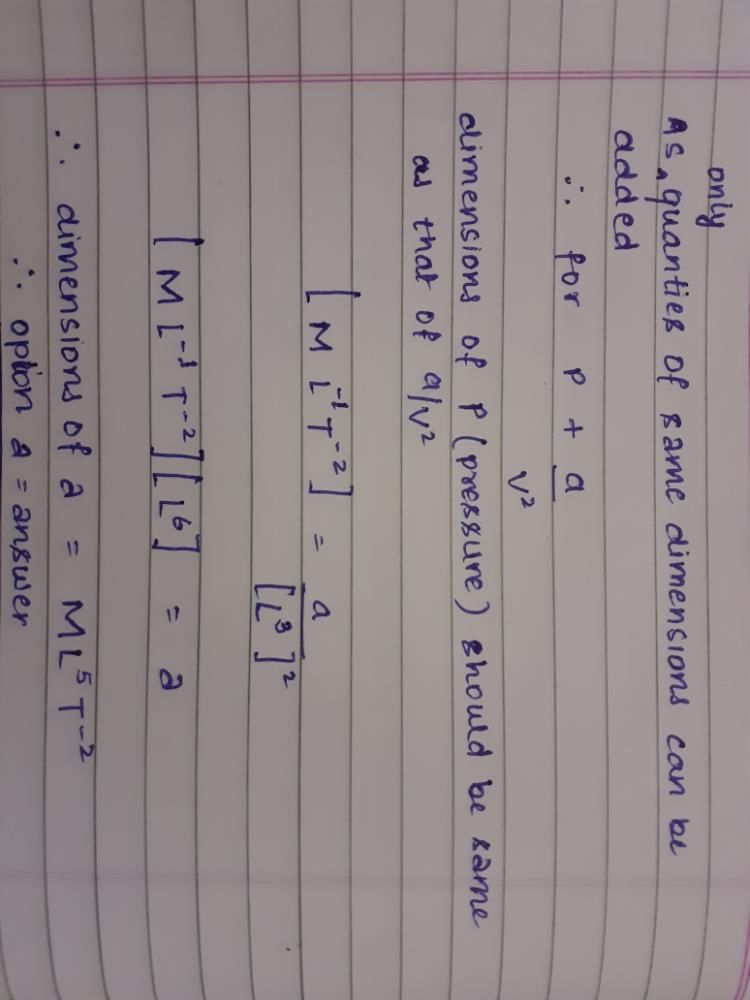 only
As ‸ quanties of same dimensions can be
added
∴ for P + a/V²
dimensions of P (pressure) should be same
as that of a/v²
[M L⁻¹ T⁻²] = a/[L³]²
[M L⁻¹ T⁻²][L⁶] = a
∴ dimensions of a = ML⁵T⁻²
∴ option a = answer